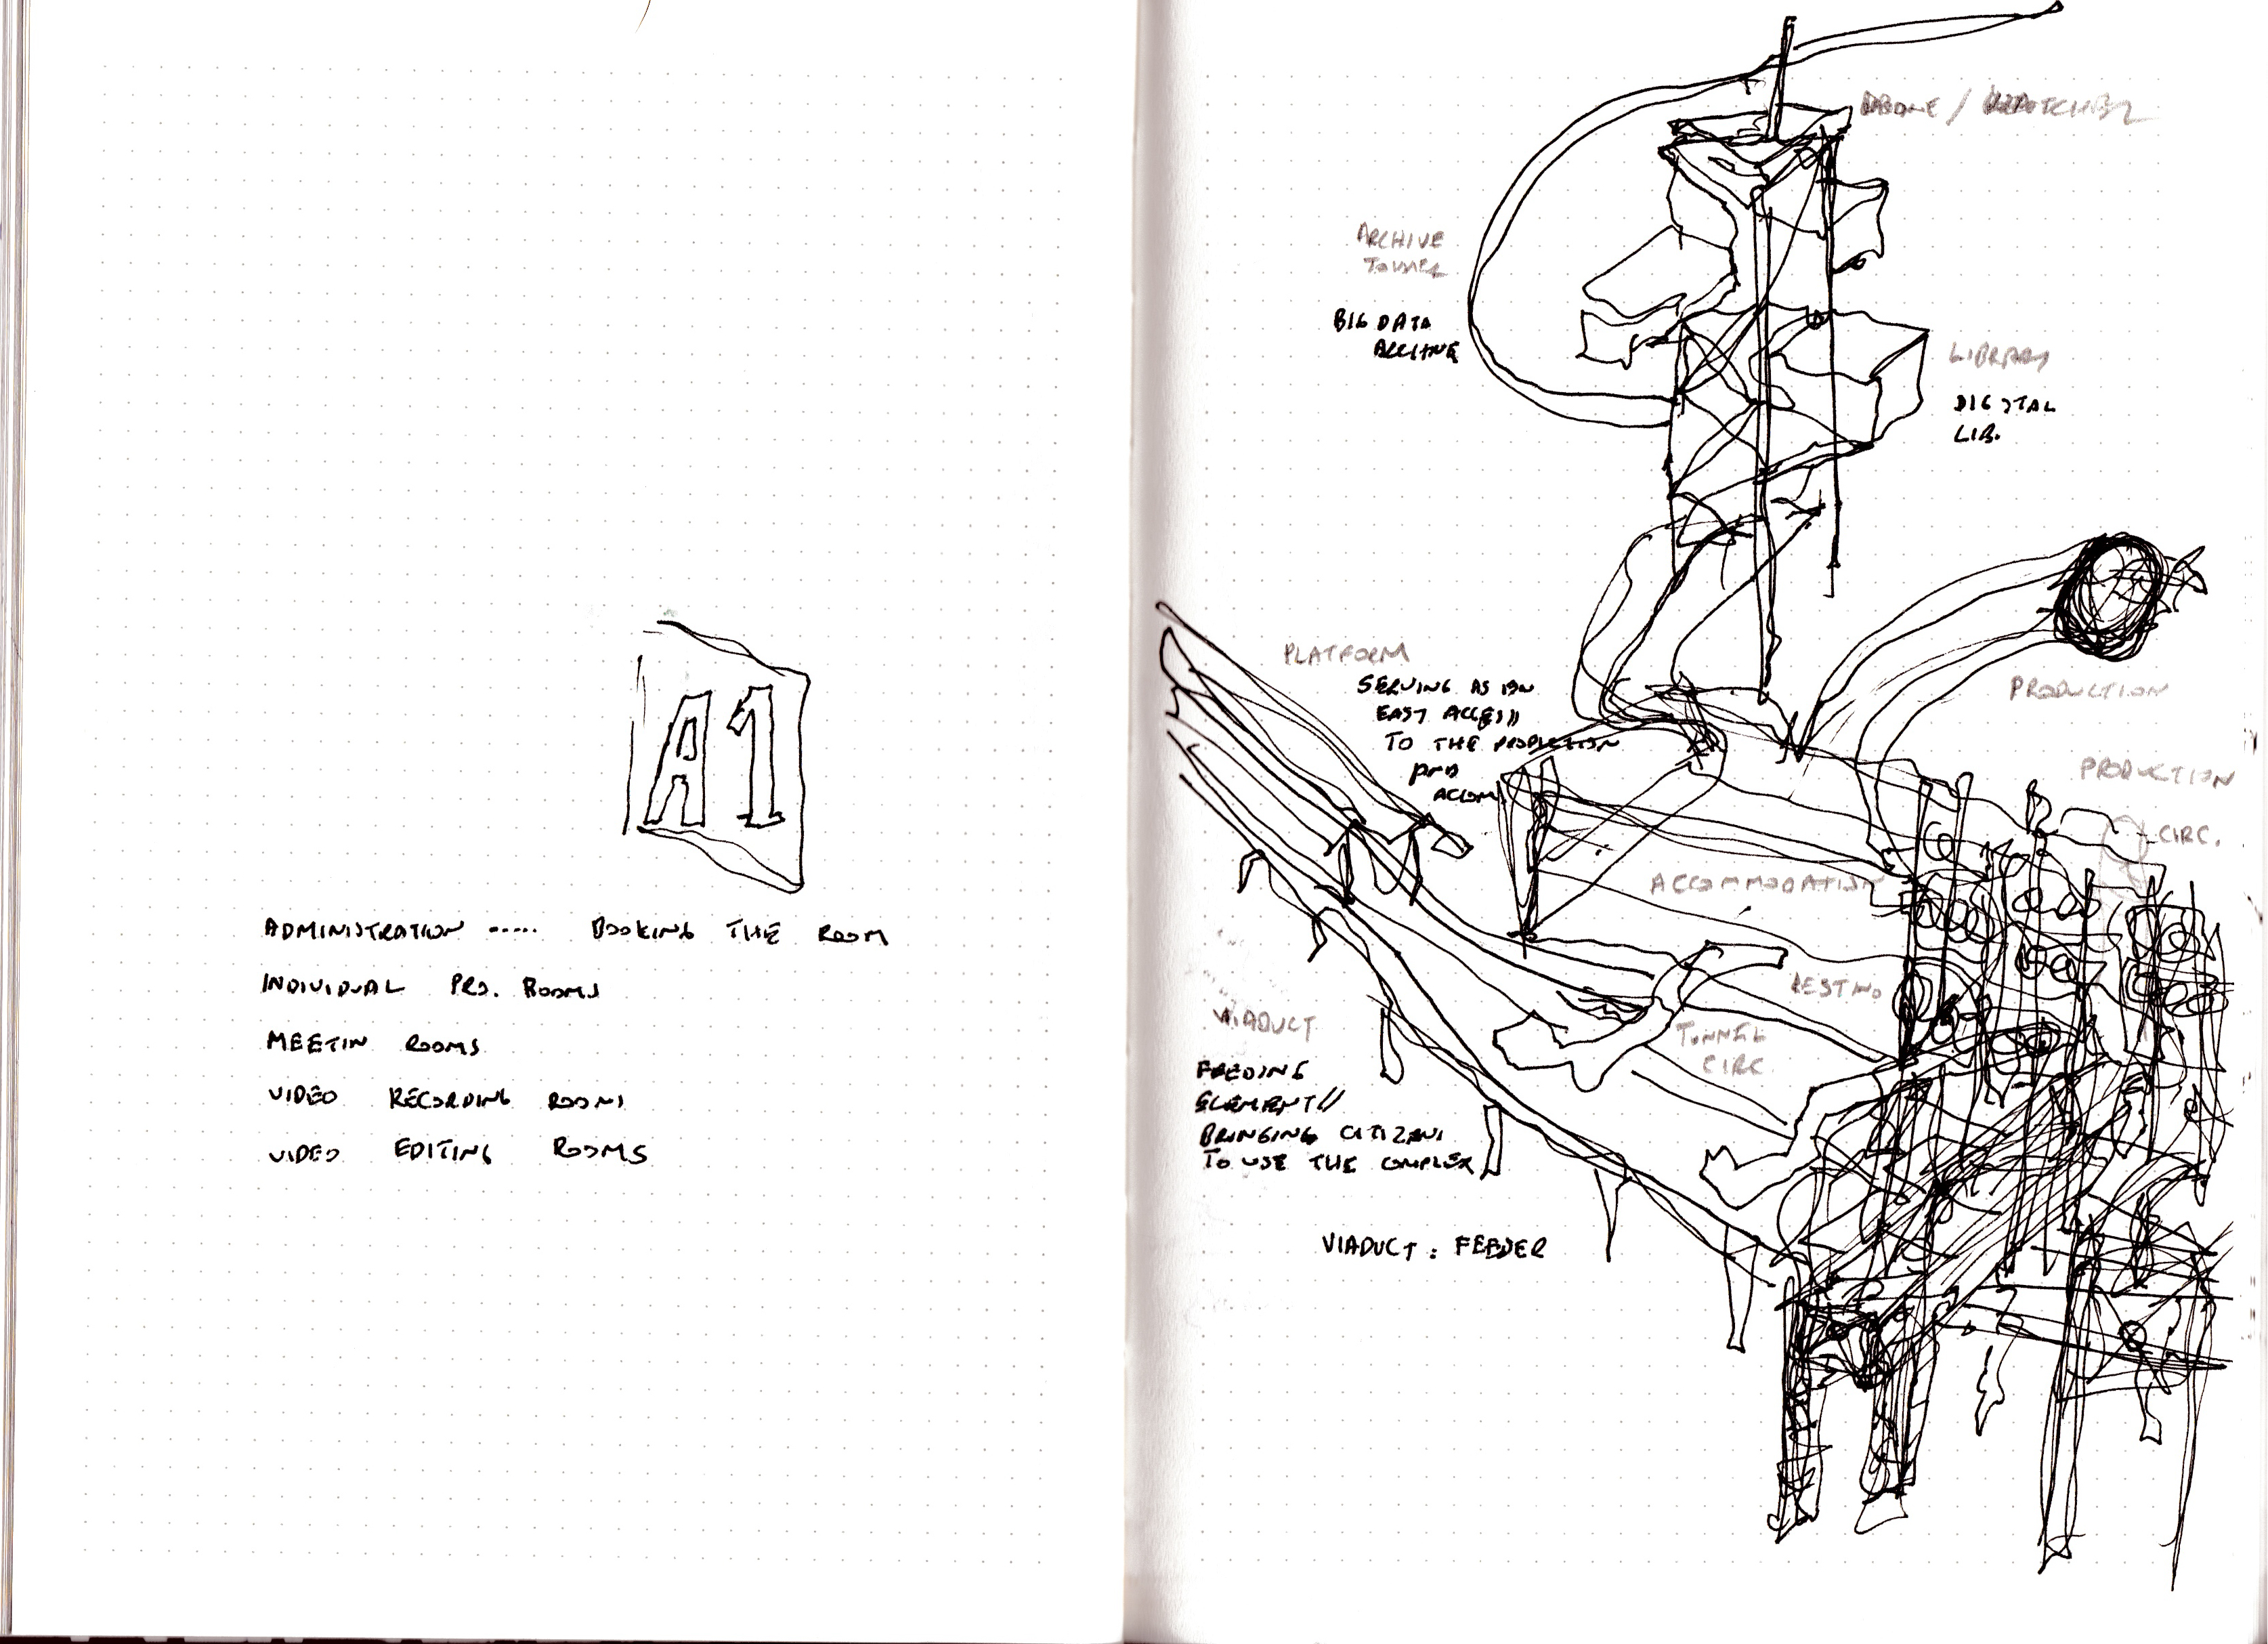 A1
ADMINISTRATION ..... BOOKING THE ROOM
INDIVIDUAL PRO. ROOMS
MEETIN ROOMS
VIDEO RECORDING ROOMS
VIDEO EDITING ROOMS
ARCHIVE
TOWER
BIG DATA
ARCHIVE
LIBRARY
DIGITAL
LIB.
PLATFORM
SERVING AS AN
EAST ACCESS
TO THE PRODUCTION
AND
ACCOM
PRODUCTION
PRODUCTION
CIRC.
ACCOMMODATION
TUNNEL
CIRC.
VIADUCT
FEEDING
ELEMENT//
BRINGING CITIZENS
TO USE THE COMPLEX
VIADUCT : FEEDER